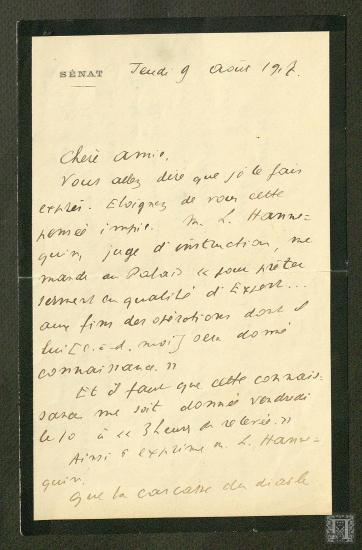 SÉNAT
Jeudi 9 Août 1917.
Chère amie,
Vous allez dire que je le fais
exprès. Eloignez de vous cette
pensée impie. M. L. Hanne=
quin, juge d'instruction, me
mande au Palais « pour prêter
serment en qualité d'Expert...
aux fins des opérations dont il
lui [c.-à-d. moi] sera donné
connaissance. »
Et il faut que cette connais-
sance me soit donnée vendredi
le 10 à « 3 heures de relevée. »
Ainsi s'exprime M. L. Hanne-
quin.
Que la carcasse du diable